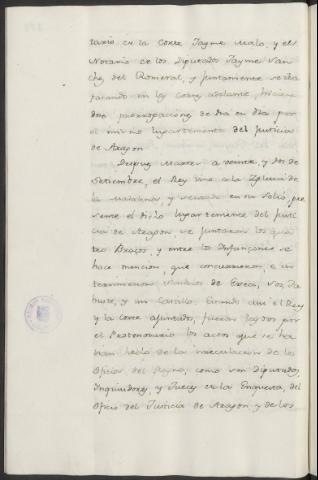 tario, en la Corte Jayme Malo, y el
Notario de los Diputados Jayme San-
chez del Romeral, y juntamente se va
tarando en las Cortes adelante, hicien
dose prorrogaciones de dia en dia por
el mismo lugarteniente del Justicia
de Aragon.
Despues Martes a veinte, y dos de
Setiembre, el Rey vino a la Iglesia de
la Madalena, y sentado en su Solio, pre
sente el dicho lugarteniente del Justi
cia de Aragon, se juntaron los qua
tro Brazos, y entre los Infanzones se
hace mencion, que concurrieron, e in
tervinieron Sindicos de Exea, Sos, Sa
y un Castillo. Estando assi el Rey
y la Corte ajuntados, fueron leydos por
el Protonotario los actos que se ha
vian hecho de la insiculacion de los
Oficios del Reyno, como son Diputados,
Inquisidores, y Jueces en la Enquesta, del
Oficio del Justicia de Aragon, y de los